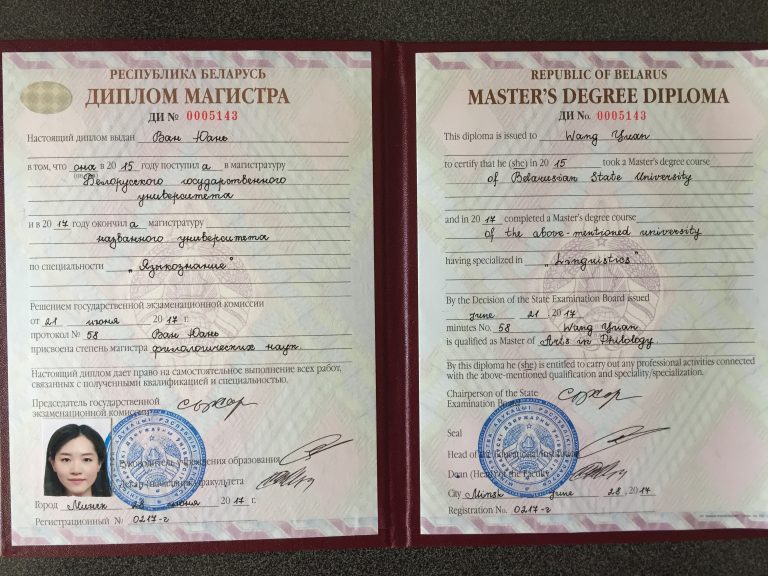 РЕСПУБЛИКА БЕЛАРУСЬ
ДИПЛОМ МАГИСТРА
ДИ № 0005143
Настоящий диплом выдан Ван Юань
в том, что она в 20 15 году поступил а в магистратуру
Белорусского государственного
университета
и в 20 17 году окончил а магистратуру
названного университета
по специальности „Языкознание"
Решением государственной экзаменационной комиссии
от 21 июня 2017 г.
протокол № 58 Ван Юань
присвоена степень магистра филологических наук.
Настоящий диплом дает право на самостоятельное выполнение всех работ,
связанных с полученными квалификацией и специальностью.
Председатель государственной
экзаменационной комиссии
Руководитель учреждения образования
факультета
Город Минск 28 июня 2017 г.
Регистрационный № 0217-г
REPUBLIC OF BELARUS
MASTER'S DEGREE DIPLOMA
ДИ No. 0005143
This diploma is issued to Wang Yuan
to certify that he (she) in 20 15 took a Master's degree course
of Belarusian State University
and in 20 17 completed a Master's degree course
of the above-mentioned university
having specialized in „Linguistics"
By the Decision of the State Examination Board issued
June 21, 2017
minutes No. 58 Wang Yuan
is qualified as Master of Arts in Philology.
By this diploma he (she) is entitled to carry out any professional activities connected
with the above-mentioned qualification and speciality/specialization.
Chairperson of the State
Examination Board
Seal
Head of the Educational Institution
Dean (Head) of the Faculty
City Minsk June 28, 2017
Registration No. 0217-г